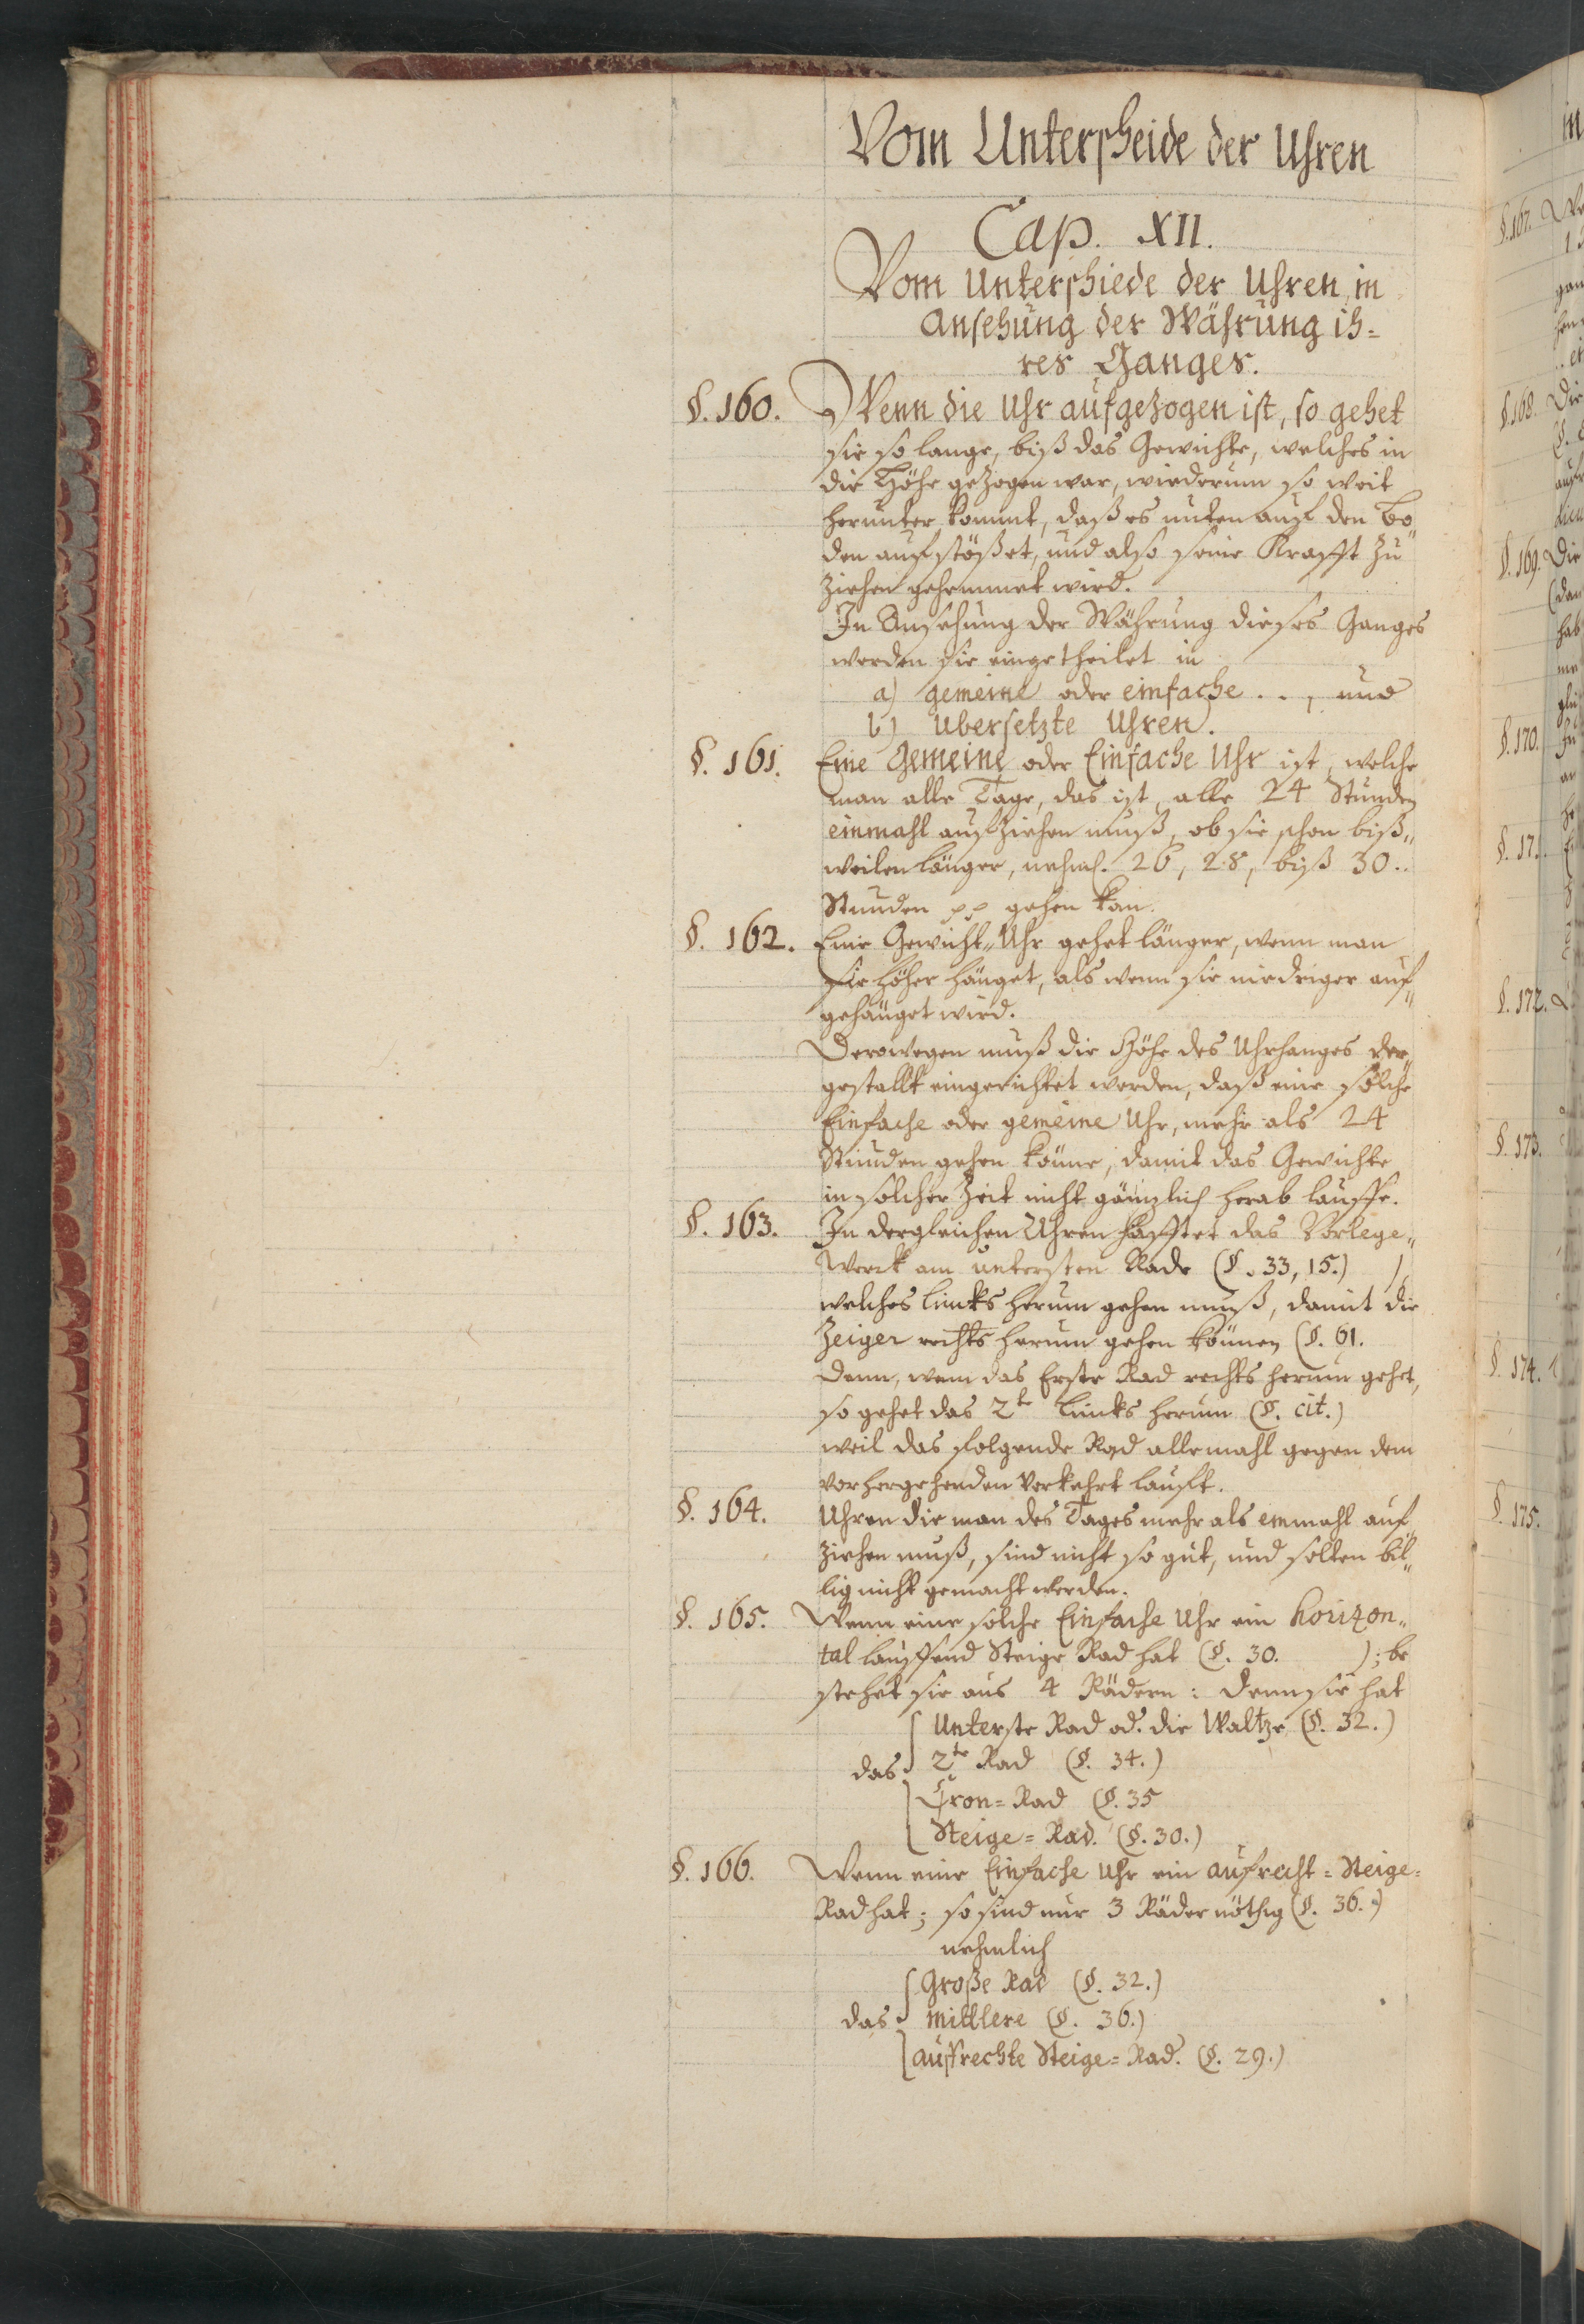 Vom Unterscheide der Uhren
Cap. XII.
Vom Unterschiede der Uhren, in
Ansehung der Währung ih=
res Ganges.
§. 160. Wenn die Uhr aufgezogen ist, so gehet
sie so lange, biß das Gewichte, welches in
die Höhe gezogen war, wiederum so weit
herunter kommt, daß es unten auf den Bo„
den aufstößet, und also seine Krafft zu
ziehen gehemmet wird.
In Ansehung der Währung dieses Ganges
werden sie eingetheilet in
a) gemeine oder einfache . . , und
b) ubersetzte Uhren.
§. 161. Eine Gemeine oder Einfache Uhr ist, welche
man alle Tage, das ist, alle 24 Stunden
einmahl aufziehen muß, ob sie schon biß„
weilen länger, nehml. 26, 28, biß 30..
Stunden pp gehen kan.
§. 162. Eine Gewicht„Uhr gehet länger, wenn man
sie höher hänget, als wenn sie niedriger auf„
gehänget wird.
Derowegen muß die Höhe des Uhrhanges der„
gestallt eingerichtet werden, daß eine solche
Einfache oder gemeine Uhr, mehr als 24
Stunden gehen könne, damit das Gewichte
in solcher Zeit nicht gäntzlich herab lauffe.
§. 163. In dergleichen Uhren hafftet das Vorlege„
Werck am untersten Rade (§. 33, 15.) ),
welches lincks herum gehen muß, damit die
Zeiger rechts herum gehen können (§. 61.
Denn, wenn das Erste Rad rechts herum gehet,
so gehet das 2te lincks herum (§. cit.)
weil das folgende Rad allemahl gegen dem
vorhergehenden verkehrt laufft.
§. 164. Uhren die man des Tages mehr als einmahl auf„
ziehen muß, sind nicht so gut, und solten bil„
lig nicht gemacht werden.
§. 165. Wenn eine solche Einfache Uhr ein horizon„
tal lauffend Steige Rad hat (§. 30. ); be
stehet sie aus 4 Rädern: denn sie hat
Unterste Rad od. die Waltze (§. 32.)
das 2te Rad (§. 34.)
Cron=Rad (§. 35
Steige=Rad. (§. 30.)
§. 166. Wenn eine Einfache Uhr ein aufrecht=Steige=
Rad hat; so sind nur 3 Räder nöthig (§. 36.)
nehmlich
Große Rad (§. 32.)
das mittlere (§. 36.)
auffrechte Steige=Rad. (§. 29.)
§. 167.
§. 168. Die
§. 169. Die
§. 170.
§. 17
§. 172.
§. 173.
§. 174.
§. 175.